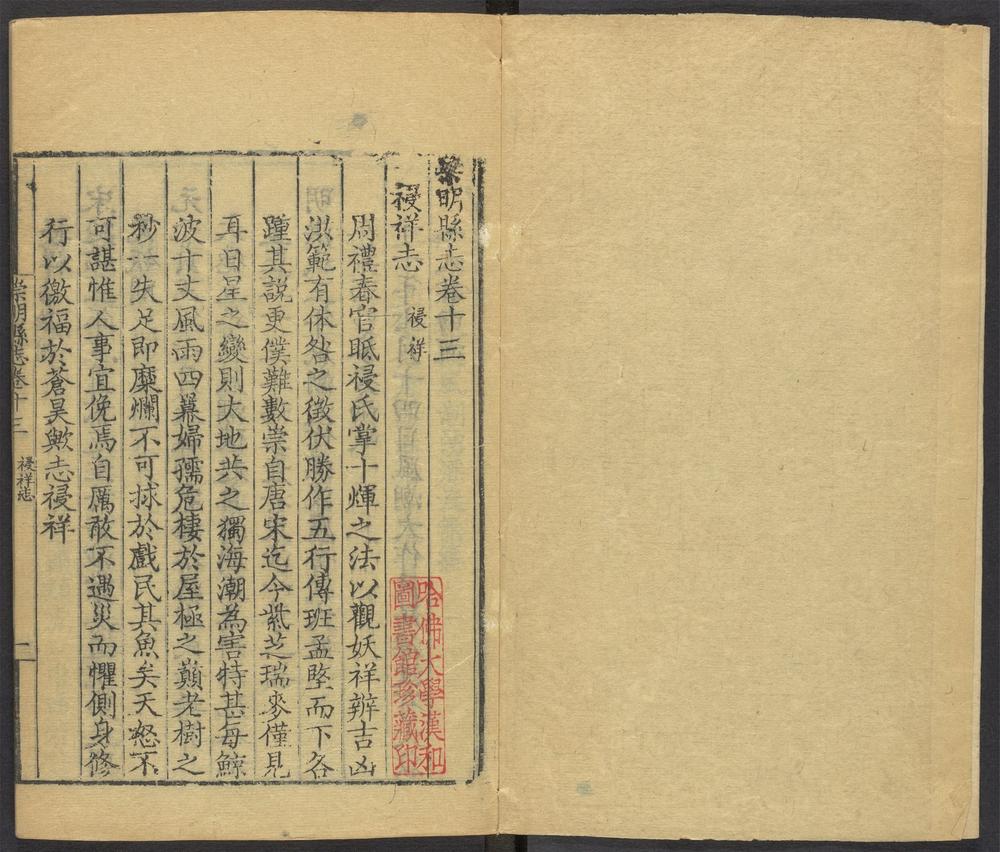 崇明縣志卷十三
祲祥志 祲祥
周禮春官眡祲氏掌十煇之法以觀妖祥辨吉凶
洪範有休咎之徵伏勝作五行傳班孟堅而下各
踵其說更僕難數崇自唐宋迄今紫芝瑞麥僅見
耳日星之變則大地共之獨海潮為害特甚每鯨
波十丈風雨四羃婦孺危棲於屋極之巔老樹之
秒一失足即糜爛不可捄於戲民其魚矣天怒不
可諶惟人事宜俛焉自厲敢不遇災而懼側身修
行以徼福於蒼昊歟志祲祥
崇明縣志卷十三
祲祥志
一
哈佛大學漢和
圖書館珍藏印